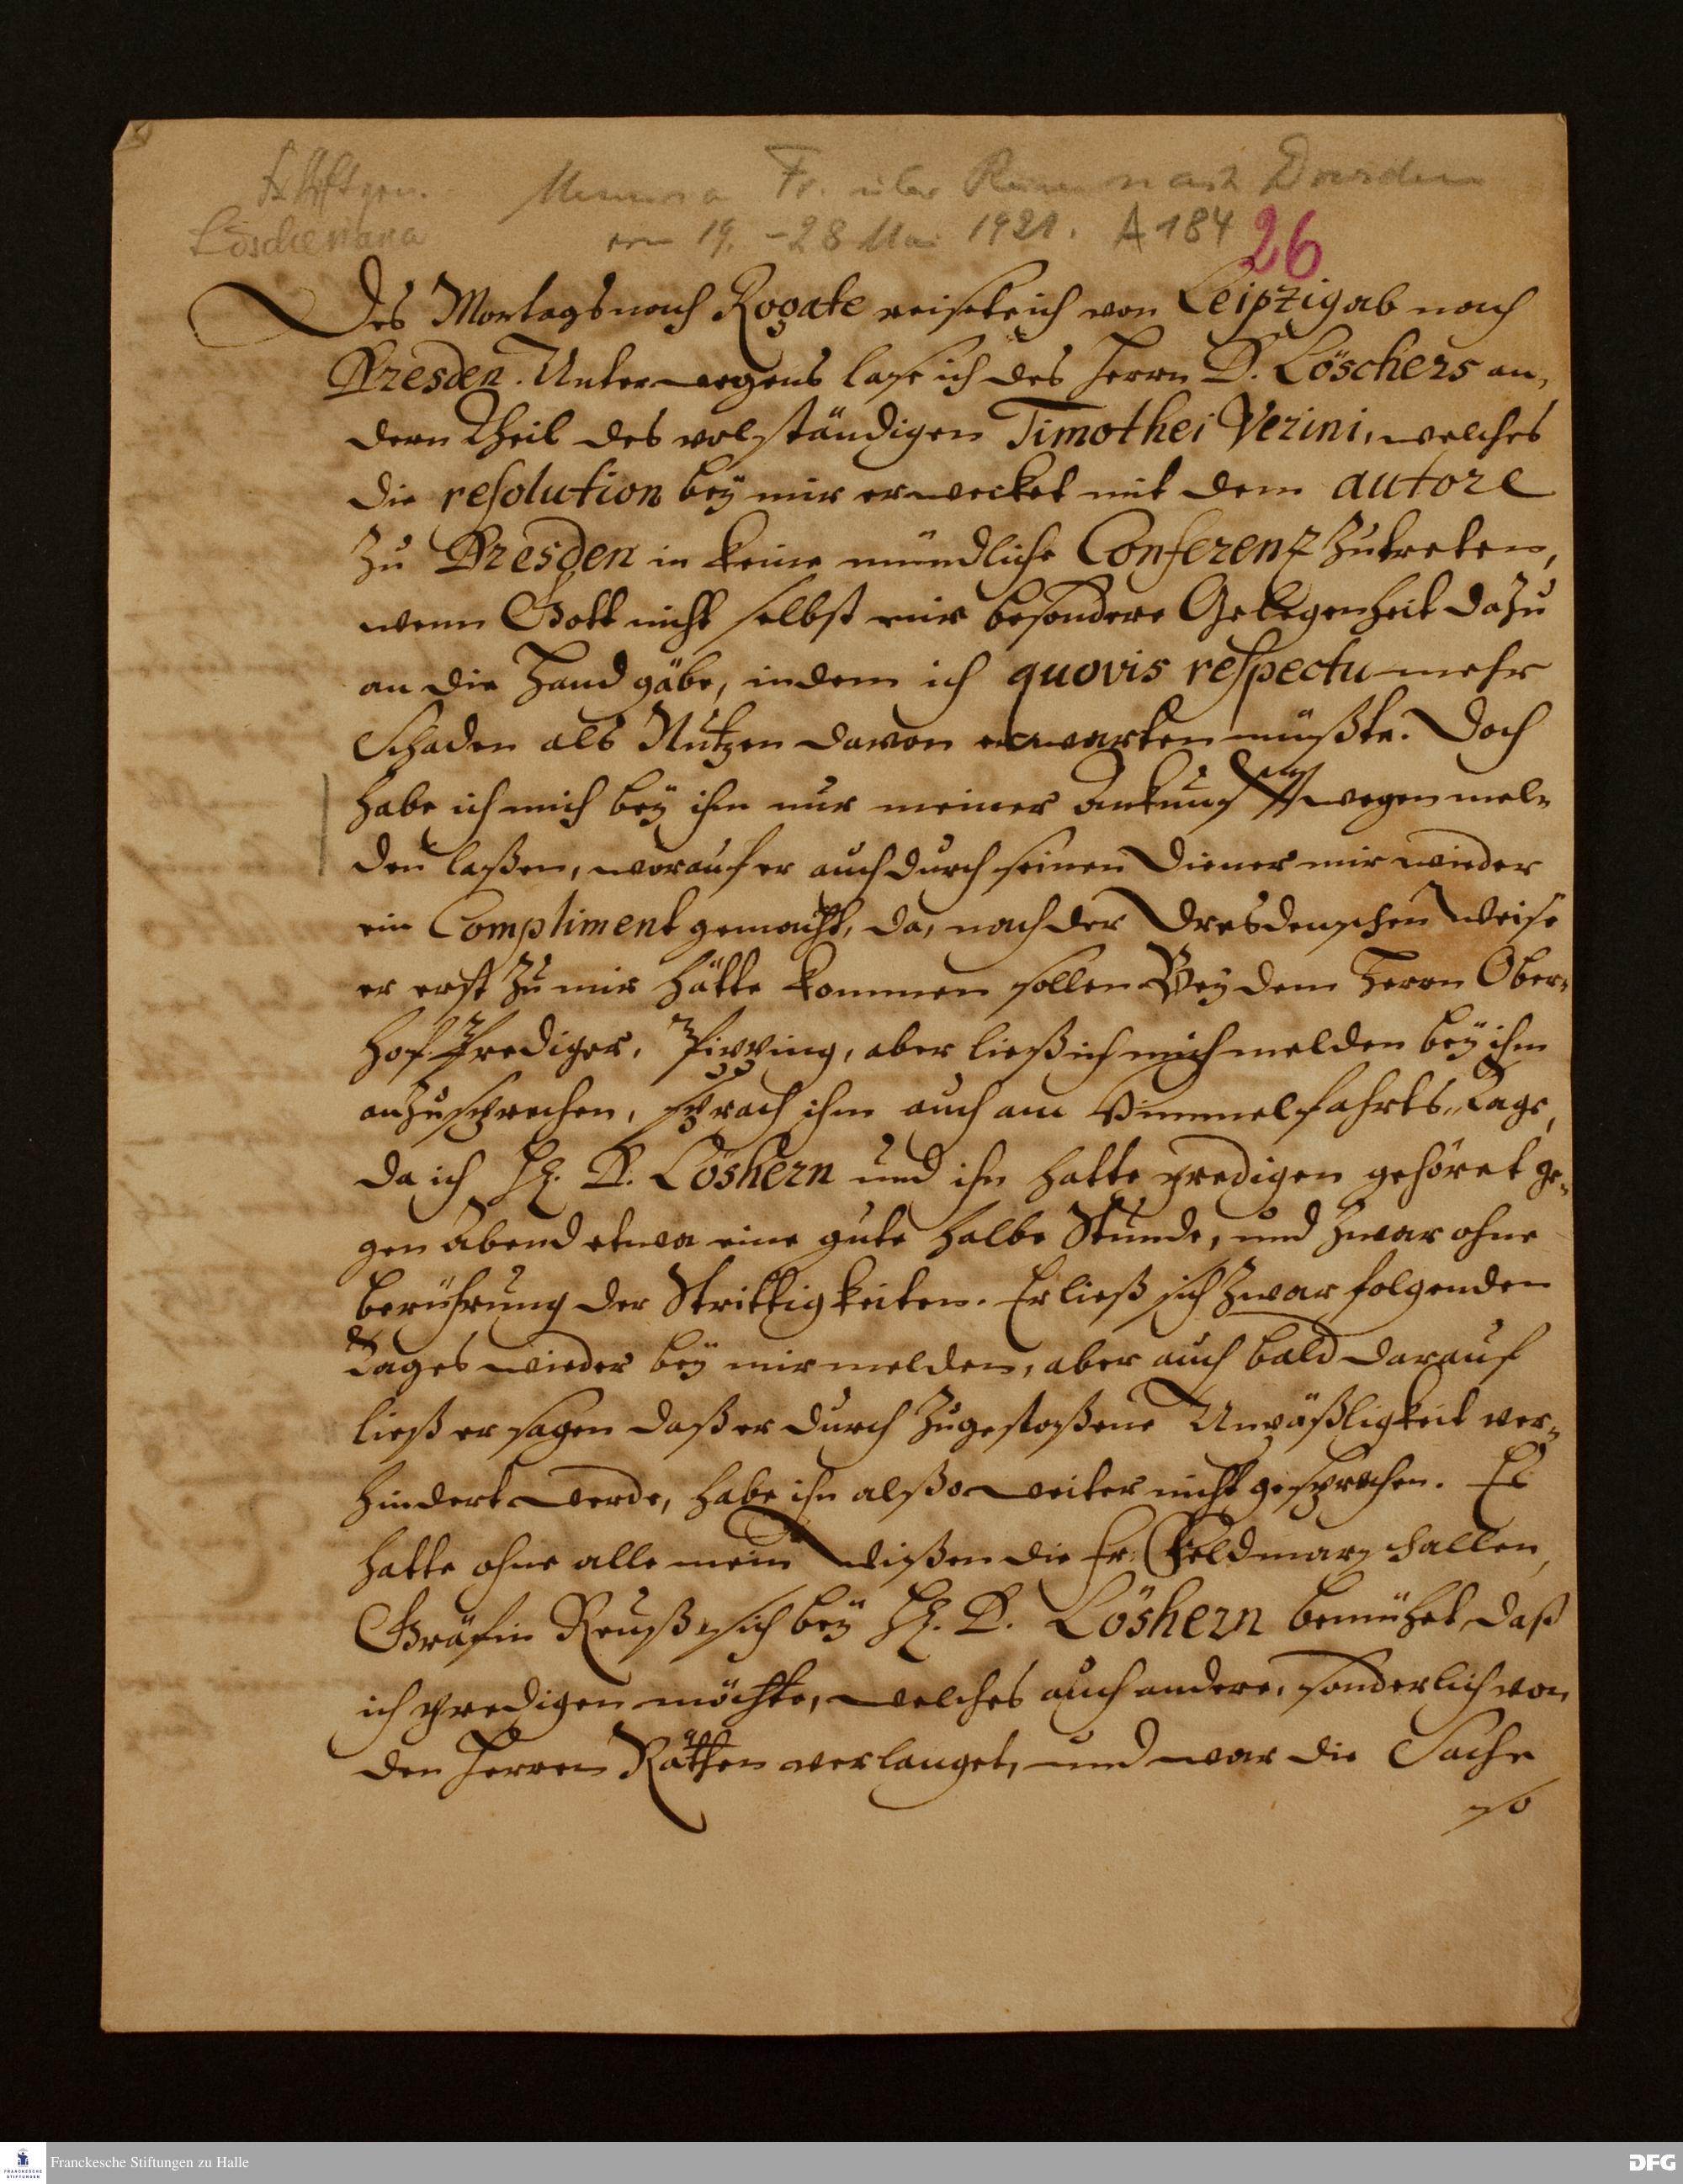 Löscheriana
Fr. über Reise nach Dresden
vom 19. - 28 Mai 1721. A 184
26
Des Montags nach Rogate reisete ich von Leipzig ab nach
Dresden. Unterwegens lase ich des Herrn D. Löschers an,
dern Theil des volständigen Timothei Verini, welches
die resolution bey mir erwecket mit dem autore
zu Dresden in keine mündliche Conferentz zutreten,
wenn Gott nicht selbst mir besondere Gelegenheit dazu
an die Hand gäbe, indem ich quovis respectu mehr
Schaden als Nutzen davon erwarten müßte. Doch
habe ich mich bey ihm nur meiner Ankunfft wegen mel-
den laßen, worauf er auch durch seinen Diener mir wieder
ein Compliment gemacht, da, nach der Dresdenschen Weise
er erst zu mir hätte kommen sollen Bey dem Herrn Ober-
hof-Prediger, Pipping, aber ließ ich mich melden bey ihm
anzusprechen, sprach ihm auch am Himmelfahrts-Tage,
da ich H. D. Löshern und ihn hatte predigen gehöret ge-
gen Abend etwa eine gute halbe Stunde, und zwar ohne
berührung der Strittigkeiten. Er ließ sich zwar folgenden
Tages wieder bey mir melden, aber auch bald darauf
ließ er sagen daß er durch zugestoßene Unpäßligkeit ver-
hindert werde, habe ihn alßo weiter nicht gesprochen. Es
hatte ohne alle mein Wißen die Fr. Feldmarschallen,
Gräfin Reuß, sich bey H. D. Löshern bemühet, daß
ich predigen möchte, welches auch andere, sonderlich von
den Herren Räthen verlanget, und war die Sache
so
Franckesche Stiftungen zu Halle
DFG